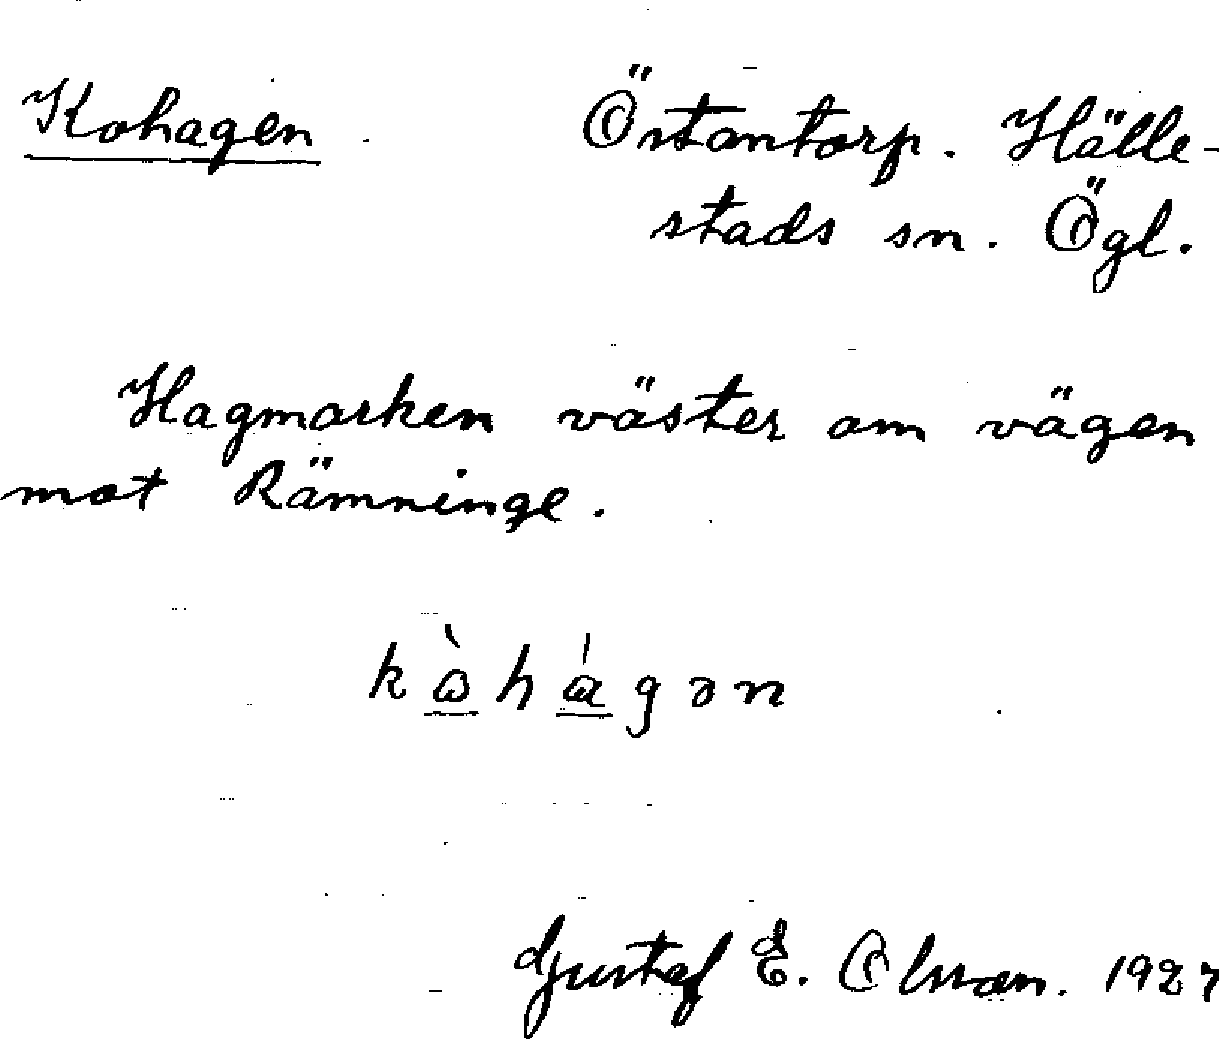 Kohagen Östantorp. Hälle-
stads sn. Ögl.
Hagmarken väster om vägen
mot Rämninge.
kὼhágən
Gustaf E. Olsson. 1927